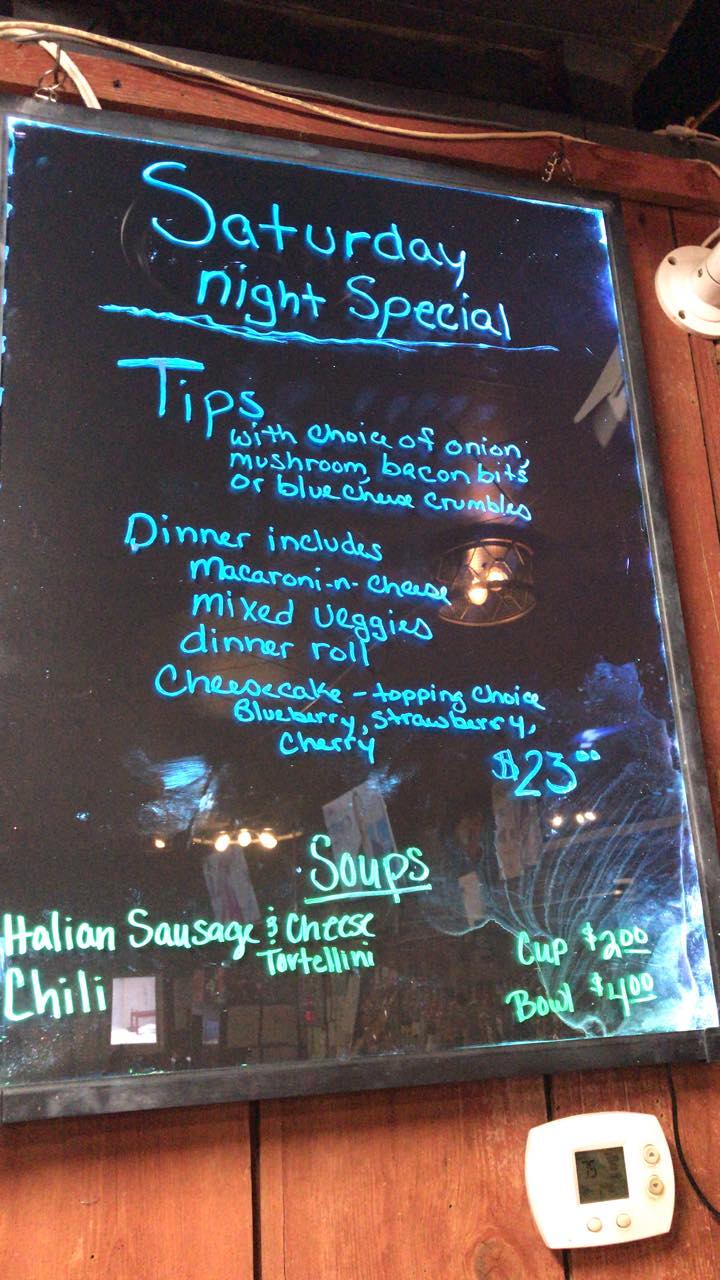 Saturday
night Special
Tips
with choice of onion,
mushroom, bacon bits
or blue cheese crumbles
Dinner includes
macaroni-n-cheese
mixed veggies
dinner roll
Cheesecake - topping choice
Blueberry, strawberry,
Cherry
$23.00
Soups
Italian Sausage & Cheese
Tortellini
Cup $2.00
Chili
Bowl $4.00
75